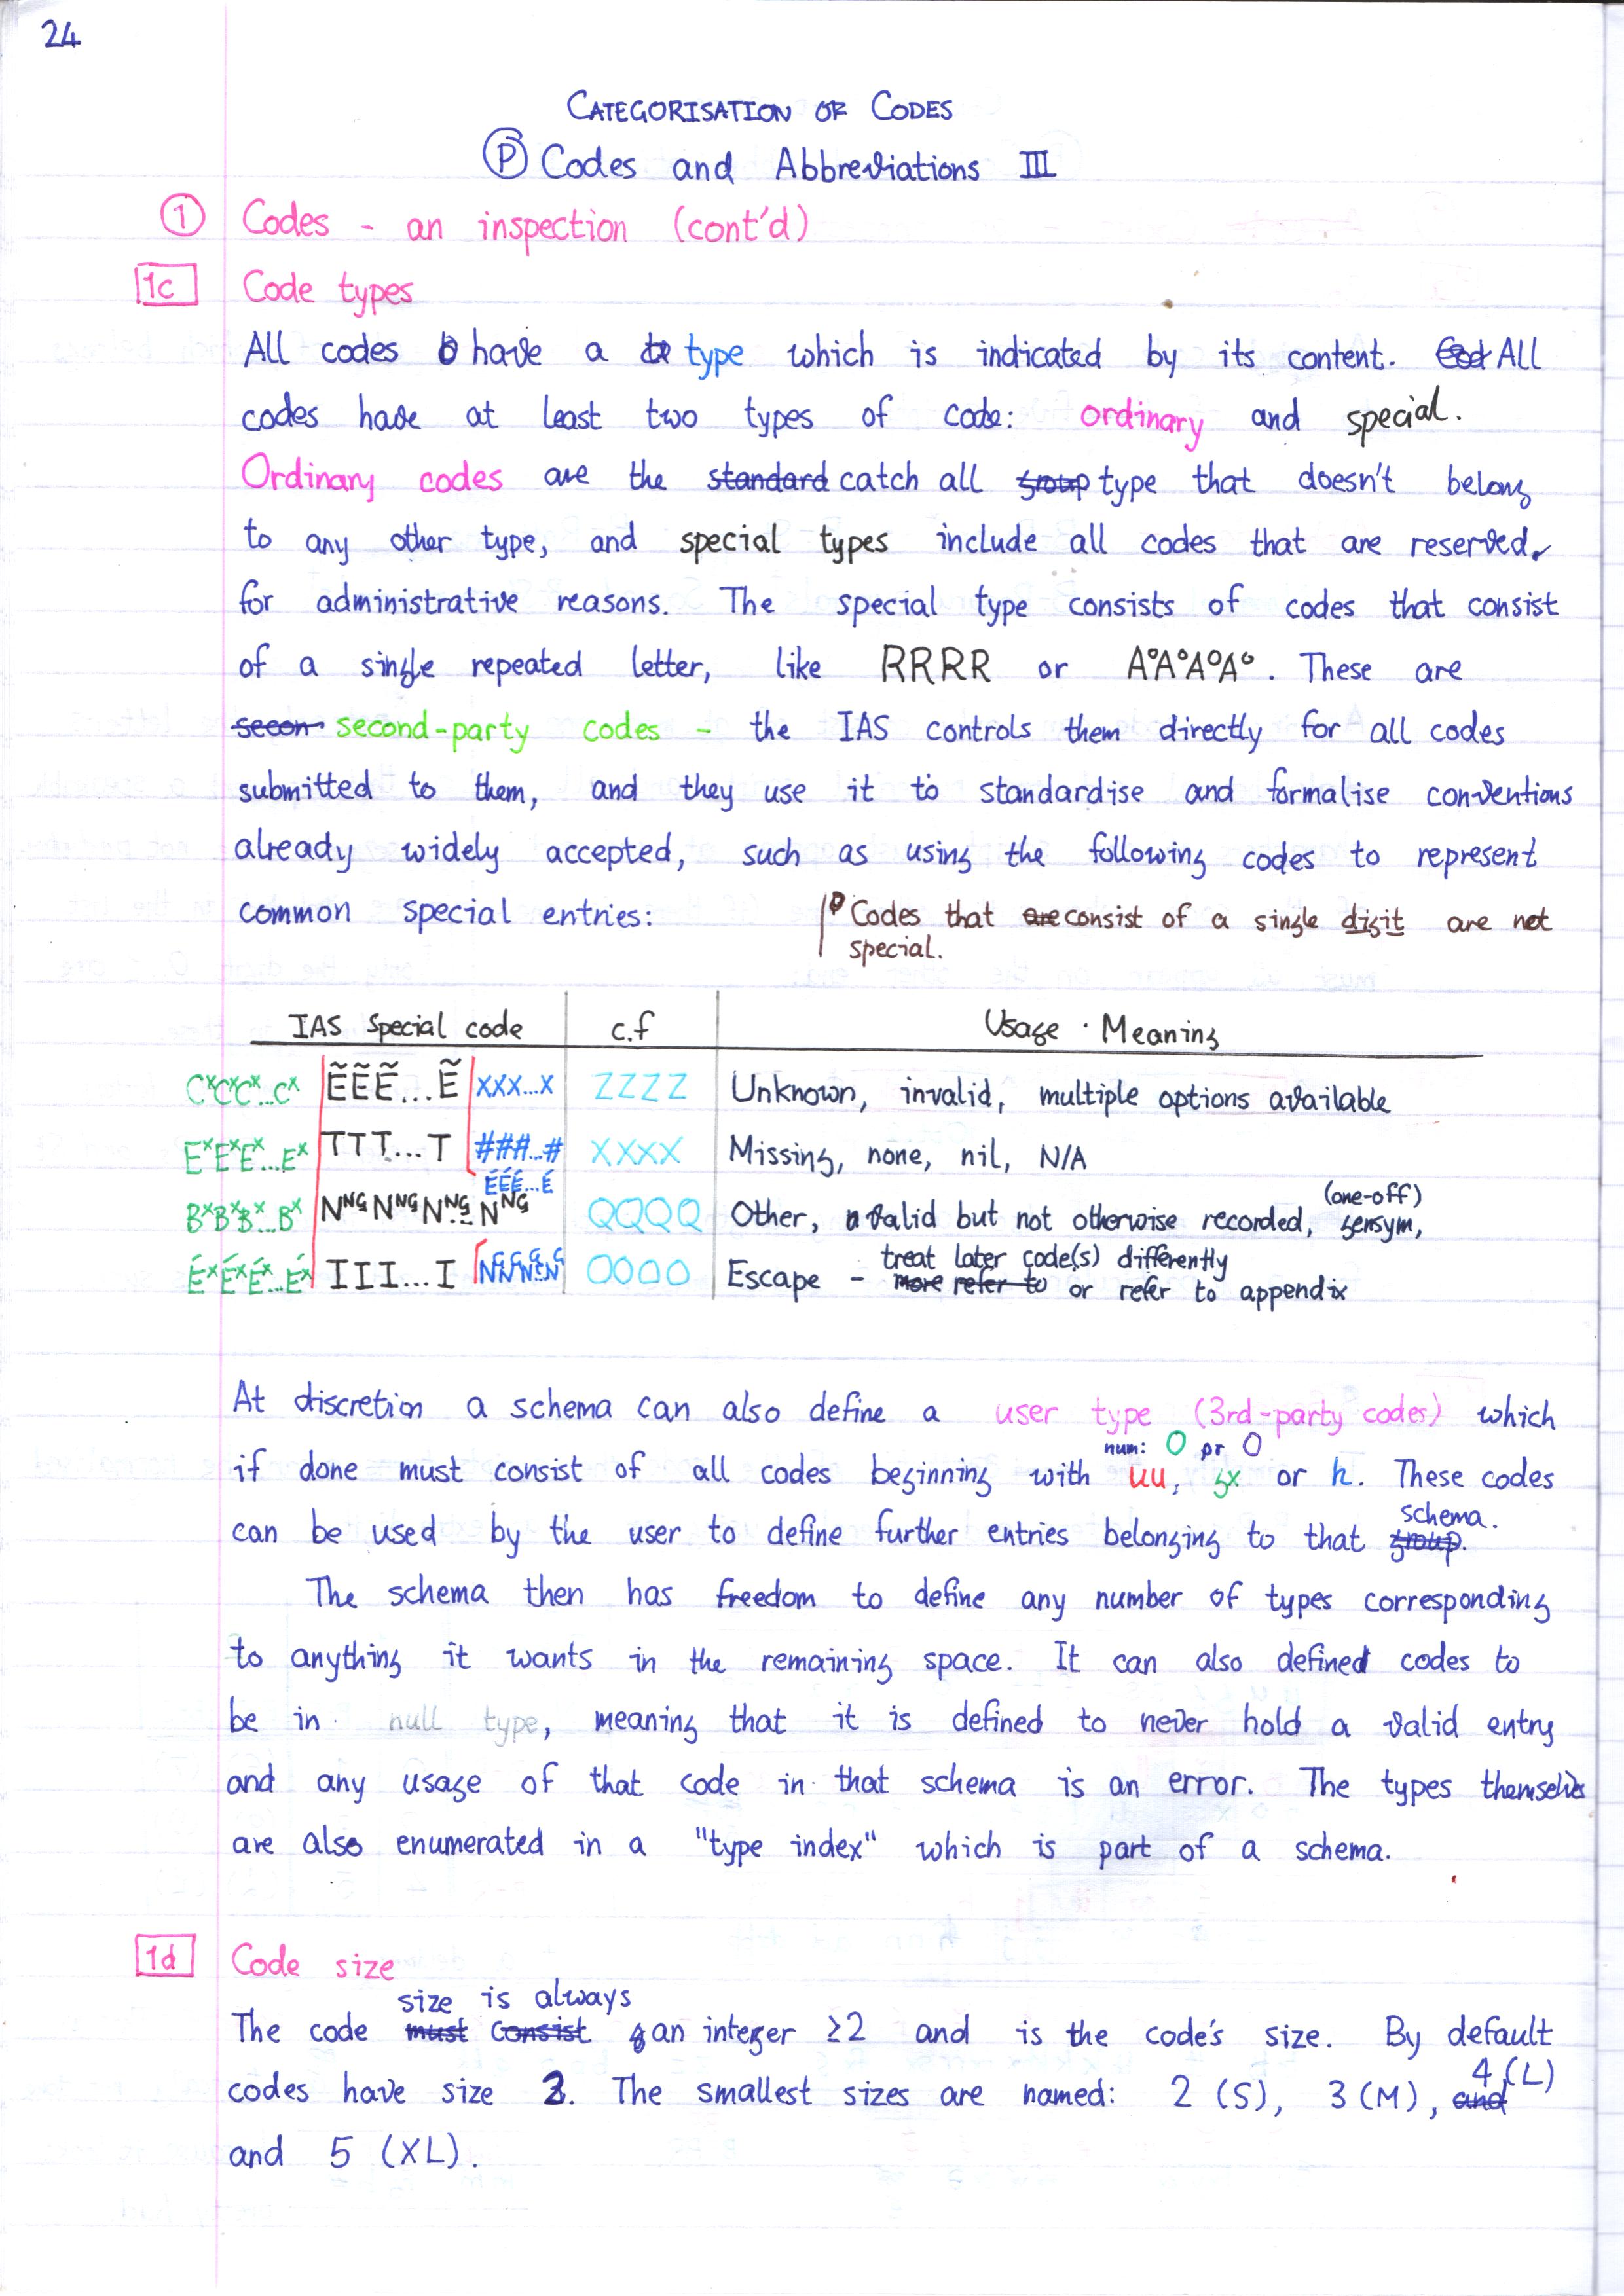 24
CATEGORISATION OF CODES
Ⓟ Codes and Abbreviations III
① Codes - an inspection (cont'd)
1c Code types
All codes have a type which is indicated by its content. All
codes have at least two types of code: ordinary and special.
Ordinary codes are the standard catch all group type that doesn't belong
to any other type, and special types include all codes that are reserved
for administrative reasons. The special type consists of codes that consist
of a single repeated letter, like RRRR or A°A°A°A°. These are
secon second-party codes - the IAS controls them directly for all codes
submitted to them, and they use it to standardise and formalise conventions
already widely accepted, such as using the following codes to represent
common special entries:
Codes that are consist of a single digit are not
special.
IAS Special code c.f Usage · Meaning
CˣCˣCˣ...Cˣ ẼẼẼ...Ẽ XXX...X ZZZZ Unknown, invalid, multiple options available
EˣEˣEˣ...Eˣ TTT...T ###...# XXXX Missing, none, nil, N/A
ÉÉÉ...É
BˣBˣBˣ...Bˣ Nᴺᴳ Nᴺᴳ Nᴺᴳ... Nᴺᴳ QQQQ Other, valid but not otherwise recorded, gensym,
(one-off)
ÉˣÉˣÉˣ...Éˣ III...I OOOO Escape - treat later code(s) differently
more refer to or refer to appendix
At discretion a schema can also define a user type (3rd-party codes) which
num: 0 or 0
if done must consist of all codes beginning with uu, gx or h. These codes
can be used by the user to define further entries belonging to that group. schema.
The schema then has freedom to define any number of types corresponding
to anything it wants in the remaining space. It can also defined codes to
be in null type, meaning that it is defined to never hold a valid entry
and any usage of that code in that schema is an error. The types themselves
are also enumerated in a "type index" which is part of a schema.
1d Code size
size is always
The code must consist an integer ≥2 and is the code's size. By default
codes have size 3. The smallest sizes are named: 2 (S), 3 (M), and 4 (L)
and 5 (XL).